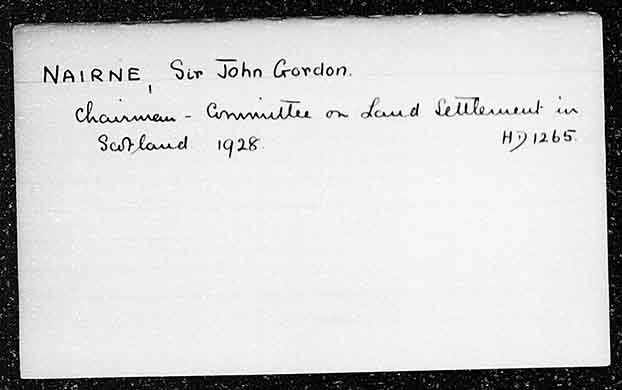 NAIRNE, Sir John Gordon.
Chairman - Committee on Land Settlement in
Scotland 1928. HD 1265.